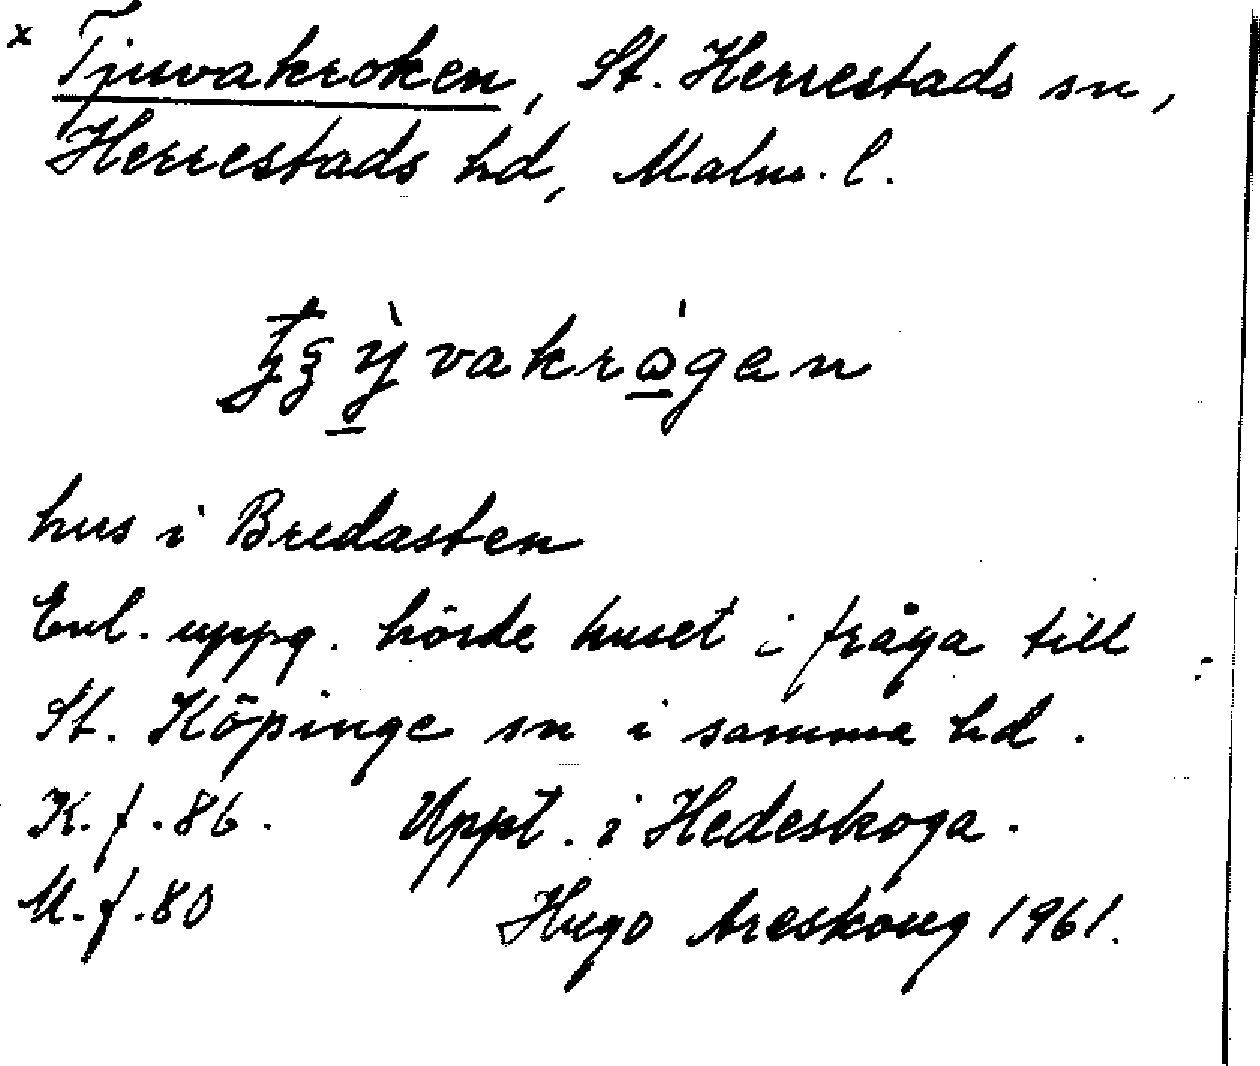 x Tjuvakroken, St. Herrestads sn,
Herrestads hd, Malm. l.
hus i Bredasten
Enl. uppg. hörde huset i fråga till
St. Köpinge sn i samma hd.
K. f. 86. Uppt. i Hedeskoga.
M. f. 80 Hugo Areskoug 1961.